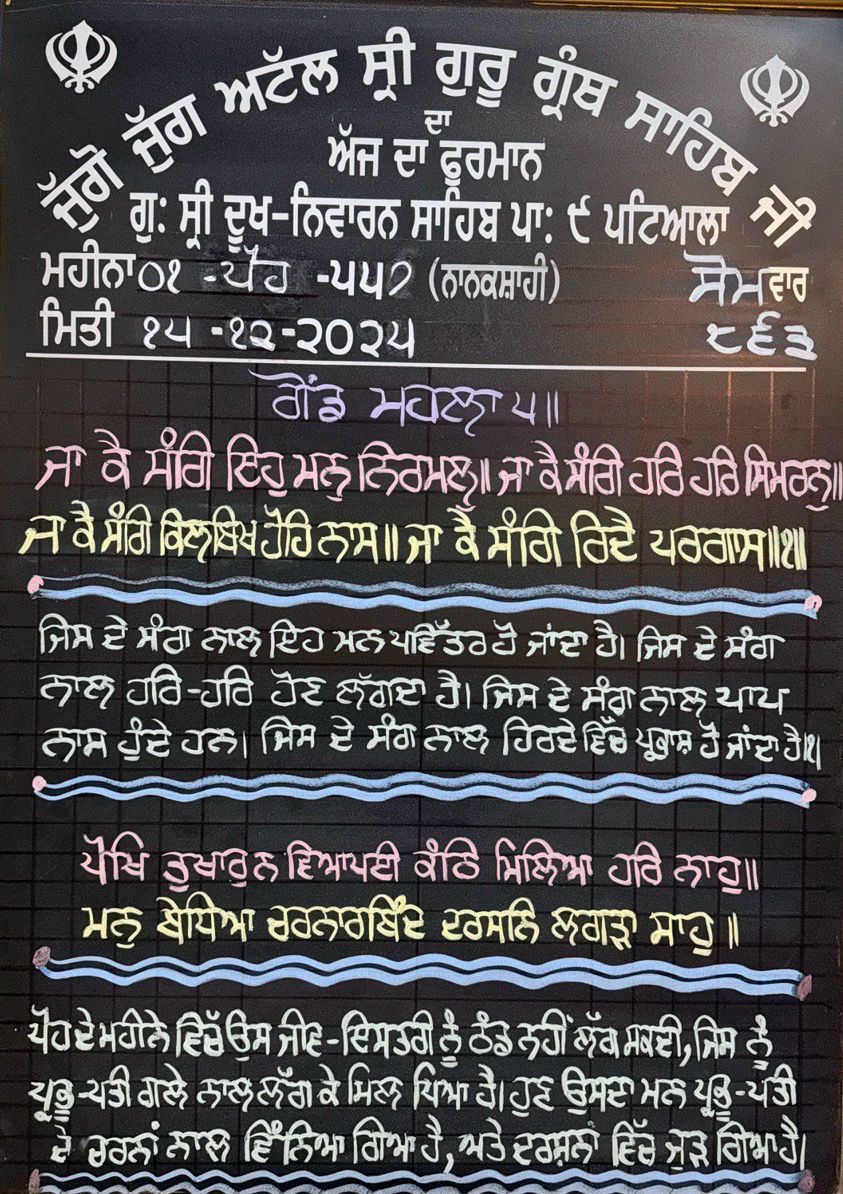 ਜੁੱਗੋ ਜੁੱਗ ਅਟੱਲ ਸ੍ਰੀ ਗੁਰੂ ਗ੍ਰੰਥ ਸਾਹਿਬ ਜੀ
ਦਾ
ਅੱਜ ਦਾ ਫੁਰਮਾਨ
ਗੁ: ਸ੍ਰੀ ਦੂਖ-ਨਿਵਾਰਨ ਸਾਹਿਬ ਪਾ: ੯ ਪਟਿਆਲਾ
ਮਹੀਨਾ ੦੧ -ਪੋਹ -੫੫੭ (ਨਾਨਕਸ਼ਾਹੀ) ਸੋਮਵਾਰ
ਮਿਤੀ ੧੫ -੧੨-੨੦੨੫ ੮੬੩
ਗੋਂਡ ਮਹਲਾ ੫॥
ਜਾ ਕੈ ਸੰਗਿ ਇਹੁ ਮਨੁ ਨਿਰਮਲੁ॥ ਜਾ ਕੈ ਸੰਗਿ ਹਰਿ ਹਰਿ ਸਿਮਰਨੁ॥
ਜਾ ਕੈ ਸੰਗਿ ਕਿਲਬਿਖ ਹੋਹਿ ਨਾਸ॥ ਜਾ ਕੈ ਸੰਗਿ ਰਿਦੈ ਪਰਗਾਸ॥੧॥
ਜਿਸ ਦੇ ਸੰਗ ਨਾਲ ਇਹ ਮਨ ਪਵਿੱਤਰ ਹੋ ਜਾਂਦਾ ਹੈ। ਜਿਸ ਦੇ ਸੰਗ
ਨਾਲ ਹਰਿ-ਹਰਿ ਹੋਣ ਲੱਗਦਾ ਹੈ। ਜਿਸ ਦੇ ਸੰਗ ਨਾਲ ਪਾਪ
ਨਾਸ ਹੁੰਦੇ ਹਨ। ਜਿਸ ਦੇ ਸੰਗ ਨਾਲ ਹਿਰਦੇ ਵਿੱਚ ਪ੍ਰਕਾਸ਼ ਹੋ ਜਾਂਦਾ ਹੈ।੧।
ਪੋਖਿ ਤੁਖਾਰੁ ਨ ਵਿਆਪਈ ਕੰਠਿ ਮਿਲਿਆ ਹਰਿ ਨਾਹੁ॥
ਮਨੁ ਬੇਧਿਆ ਚਰਨਾਰਬਿੰਦ ਦਰਸਨਿ ਲਗੜਾ ਸਾਹੁ॥
ਪੋਹ ਦੇ ਮਹੀਨੇ ਵਿਚੱ ਉਸ ਜੀਵ-ਇਸਤਰੀ ਨੂੰ ਠੰਡ ਨਹੀਂ ਲੱਗ ਸਕਦੀ, ਜਿਸ ਨੂੰ
ਪ੍ਰਭੂ-ਪਤੀ ਗਲੇ ਨਾਲ ਲੱਗ ਕੇ ਮਿਲ ਪਿਆ ਹੈ। ਹੁਣ ਉਸਦਾ ਮਨ ਪ੍ਰਭੂ-ਪਤੀ
ਦੇ ਚਰਨਾਂ ਨਾਲ ਵਿੰਨਿਆ ਗਿਆ ਹੈ, ਅਤੇ ਦਰਸ਼ਨਾਂ ਵਿੱਚ ਜੁੜ ਗਿਆ ਹੈ।